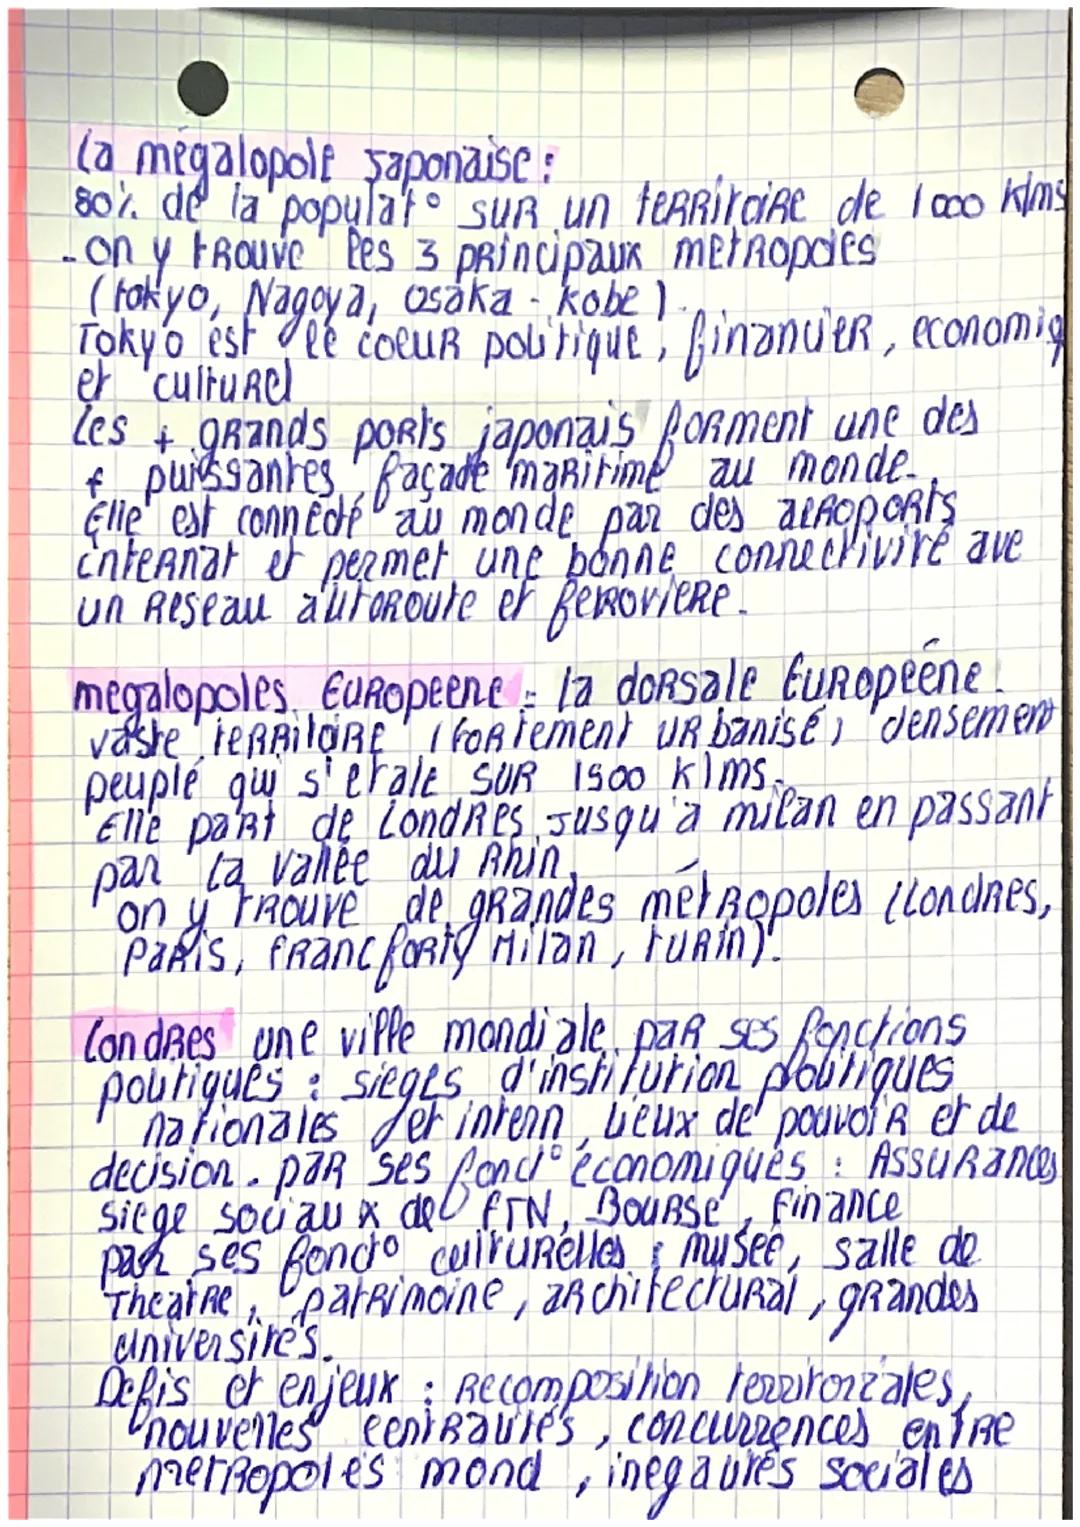 La mégalopole Japonaise :
80% de la populat° sur un territoire de 1000 klms
- on y trouve les 3 principaux metropoles
(tokyo, Nagoya, Osaka - Kobe).
Tokyo est le coeur politique, financier, economiq
et culturel
Les + grands ports japonais forment une des
+ puissantes façade maritime au monde.
Elle est connecté au monde par des aeroports
internat et permet une bonne connectivité ave
un reseau autoroute et ferroviere.
megalopoles Europeene = la dorsale Européene.
vaste territoire (fortement urbanisé) densement
peuplé qui s'etale sur 1500 klms.
Elle part de Londres jusqu'a milan en passant
par la vallée du Rhin.
on y trouve de grandes métropoles (Londres,
Paris, Francfort, Milan, turin).
Londres une ville mondiale par ses fonctions
politiques : sieges d'institution politiques
nationales et intern, lieux de pouvoir et de
decision. par ses fonct° économiques : Assurances
siege sociaux de FTN, Bourse, finance
par ses fonct° culturelles : musée, salle de
Theatre, patrimoine, architectural, grandes
universités.
Defis et enjeux : Recomposition territoriales,
nouvelles centralités, concurrences entre
metropoles mond, inegalités sociales